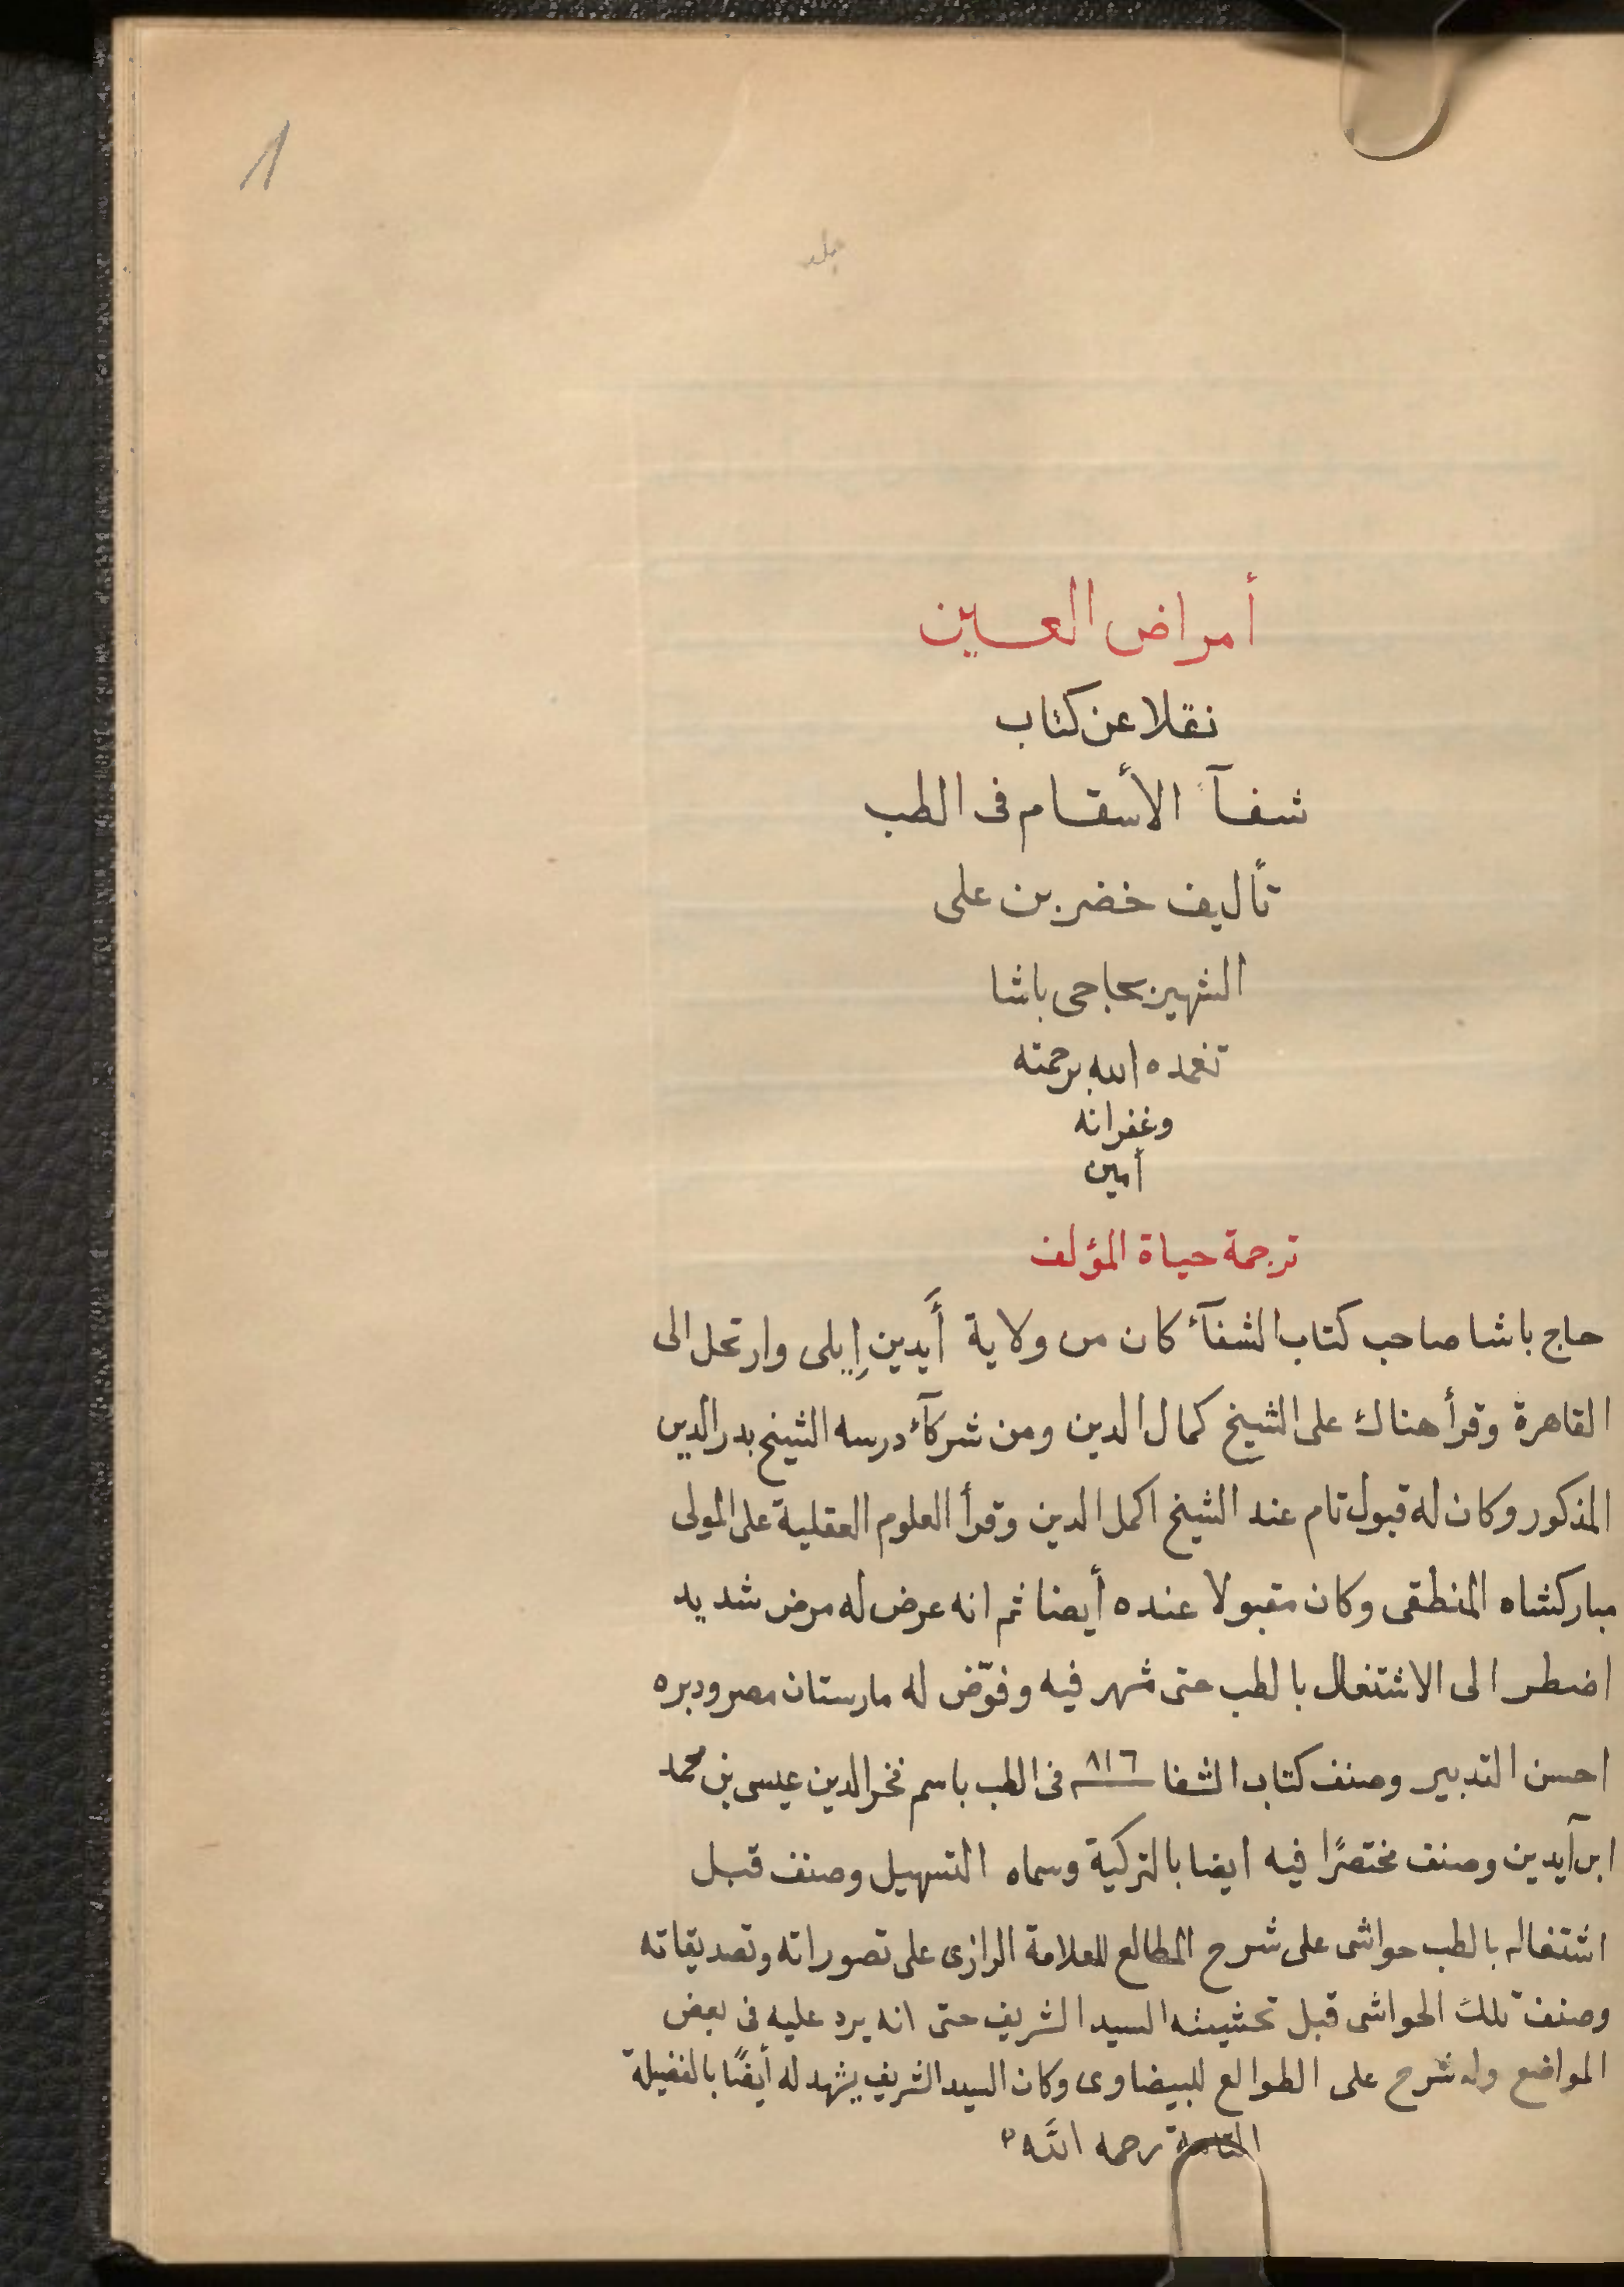 ١
جلد
أمراض العين
نقلا عن كتاب
شفآء الأسقام فى الطب
تأليف خضر بن على
الشهير بحاجى باشا
تغمده الله برحمته
وغفرانه
أمين
ترجمة حياة المؤلف
حاج باشا صاحب كتاب الشفآء كان من ولاية أَيدين إِيلى وارتحل الى
القاهرة وقرأ هناك على الشيخ كمال الدين ومن شركآء درسه الشيخ بدر الدين
المذكور وكان له قبول تام عند الشيخ اكمل الدين وقرأ العلوم العقلية على المولى
مباركشاه المنطقى وكان مقبولا عنده أيضا ثم انه عرض له مرض شديد
اضطر الى الاشتغال بالطب حتى شهر فيه وفوّض له مارستان مصر ودبره
احسن التدبير وصنف كتاب الشفا ٨١٦ فى الطب باسم فخر الدين عيسى بن محمد
ابن آيدين وصنف مختصرًا فيه ايضا بالتركية وسماه التسهيل وصنف قبل
اشتغاله بالطب حواشى على شرح المطالع للعلامة الرازى على تصوراته وتصديقاته
وصنف تلك الحواشى قبل تحشيته السيد الشريف حتى انه يرد عليه فى بعض
المواضع وله شرح على الطوالع للبيضاوى وكان السيد الشريف يشهد له أيضًا بالفضيلة
التامة رحمه الله